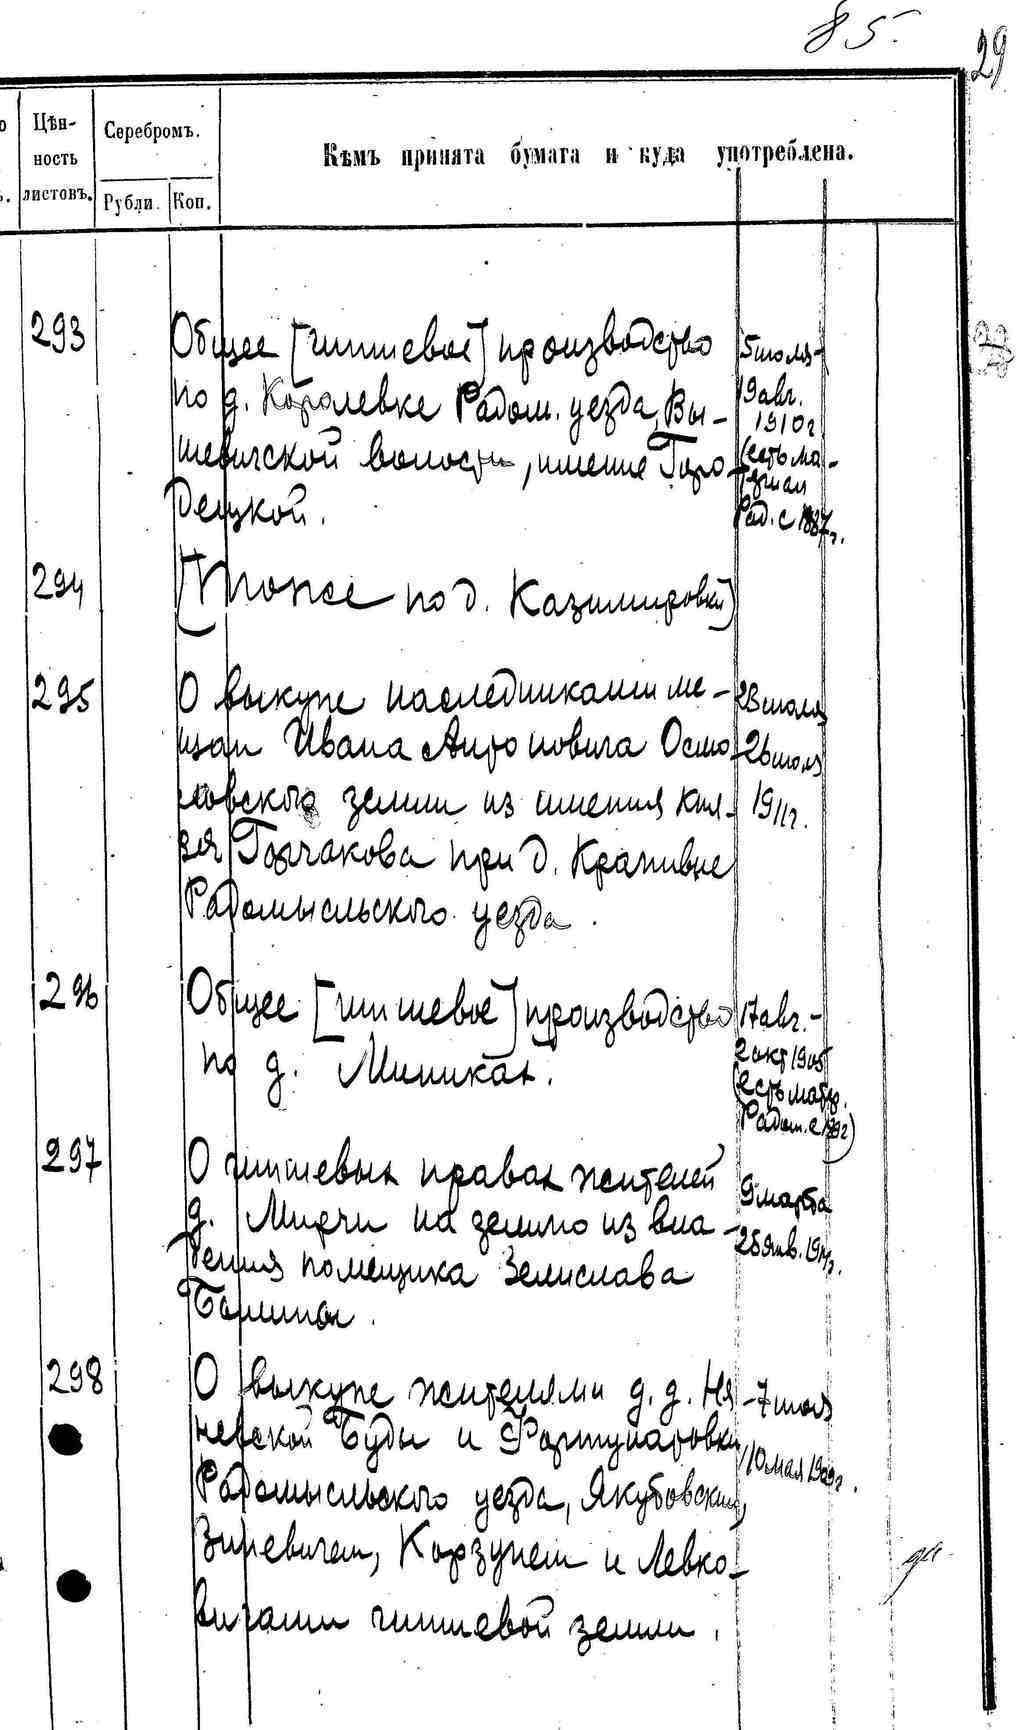 85.
29
Цѣн-
ность
листовъ.
Серебромъ.
Рубли.
Коп.
Кѣмъ принята бумага и куда употреблена.
293
Общее [чиншевое] производство
по д. Королевке Радом. уезда, Вы-
шевичской волости, имение Горо-
децкой.
5 июля-
19 авг.
1910 г
(есть ма-
териал
Рад. с 1887 г.
294
(Тоже по д. Казимировки)
295
О выкупе наследниками ме-
щан Ивана Антоновича Осмо
ловского земли из имения кня-
зя Горчакова при д. Крапивне
Радомысльского уезда.
23 июля
26 июля
1911 г.
296
Общее [чиншевое] производство
по д. Мишиках.
17 авг.-
2 окт 1905
(есть матер.
Радом. с 1892)
297
О чиншевых правах жителей
д. Мирчи на землю из вла-
дения помещика Земислава
9 марта
25 янв. 1914 г.
298
О выкупе жителями д. д. Ня
невской Буды и Фортунатовки
Радомысльского уезда, Якубовским,
Зиневичем, Корзунем и Левко-
вичами чиншевой земли.
-7 июля
10 мая 1909 г.